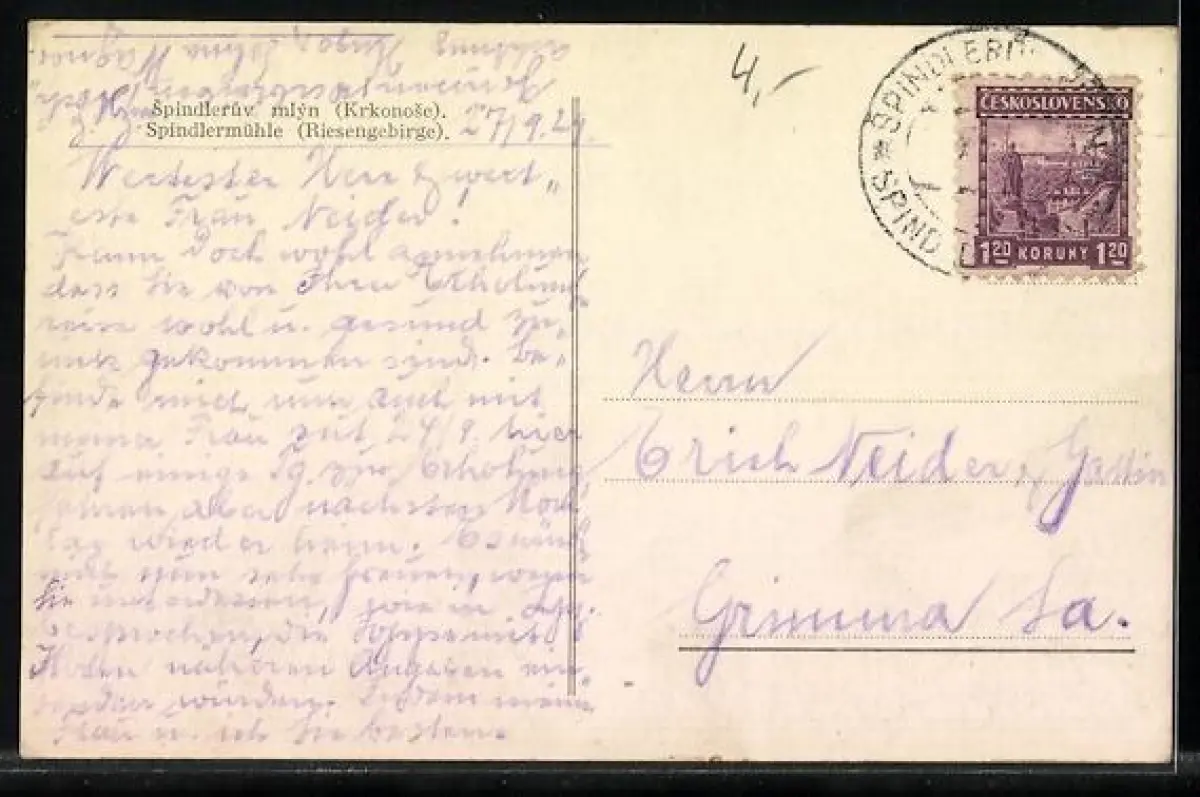 Špindlerův mlýn (Krkonoše).
Spindlermühle (Riesengebirge).
27/9. 29.
Wertester Herr & wert„
este Frau Neider!
doch wohl annehmen
dass Sie von Ihrer Erholungs
reise wohl u. gesund zu„
gekommen sind. Be„
finde mich nun auch mit
meiner Frau seit 24/9. hier
auf einige Tg. zur Erholung,
fahren aber nächsten
Tag wieder heim. Es würde
mich nun sehr freuen, wenn
Sie uns wie in
besprochen, die
näheren Angaben ein„
senden würden. Indem meine
Frau u. ich Sie bestens
4,-
SPINDLERŮV MLÝN
SPIND
ČESKOSLOVENSKO
1.20 KORUNY 1.20
Herrn
Erich Neider & Gattin
Grimma Sa.